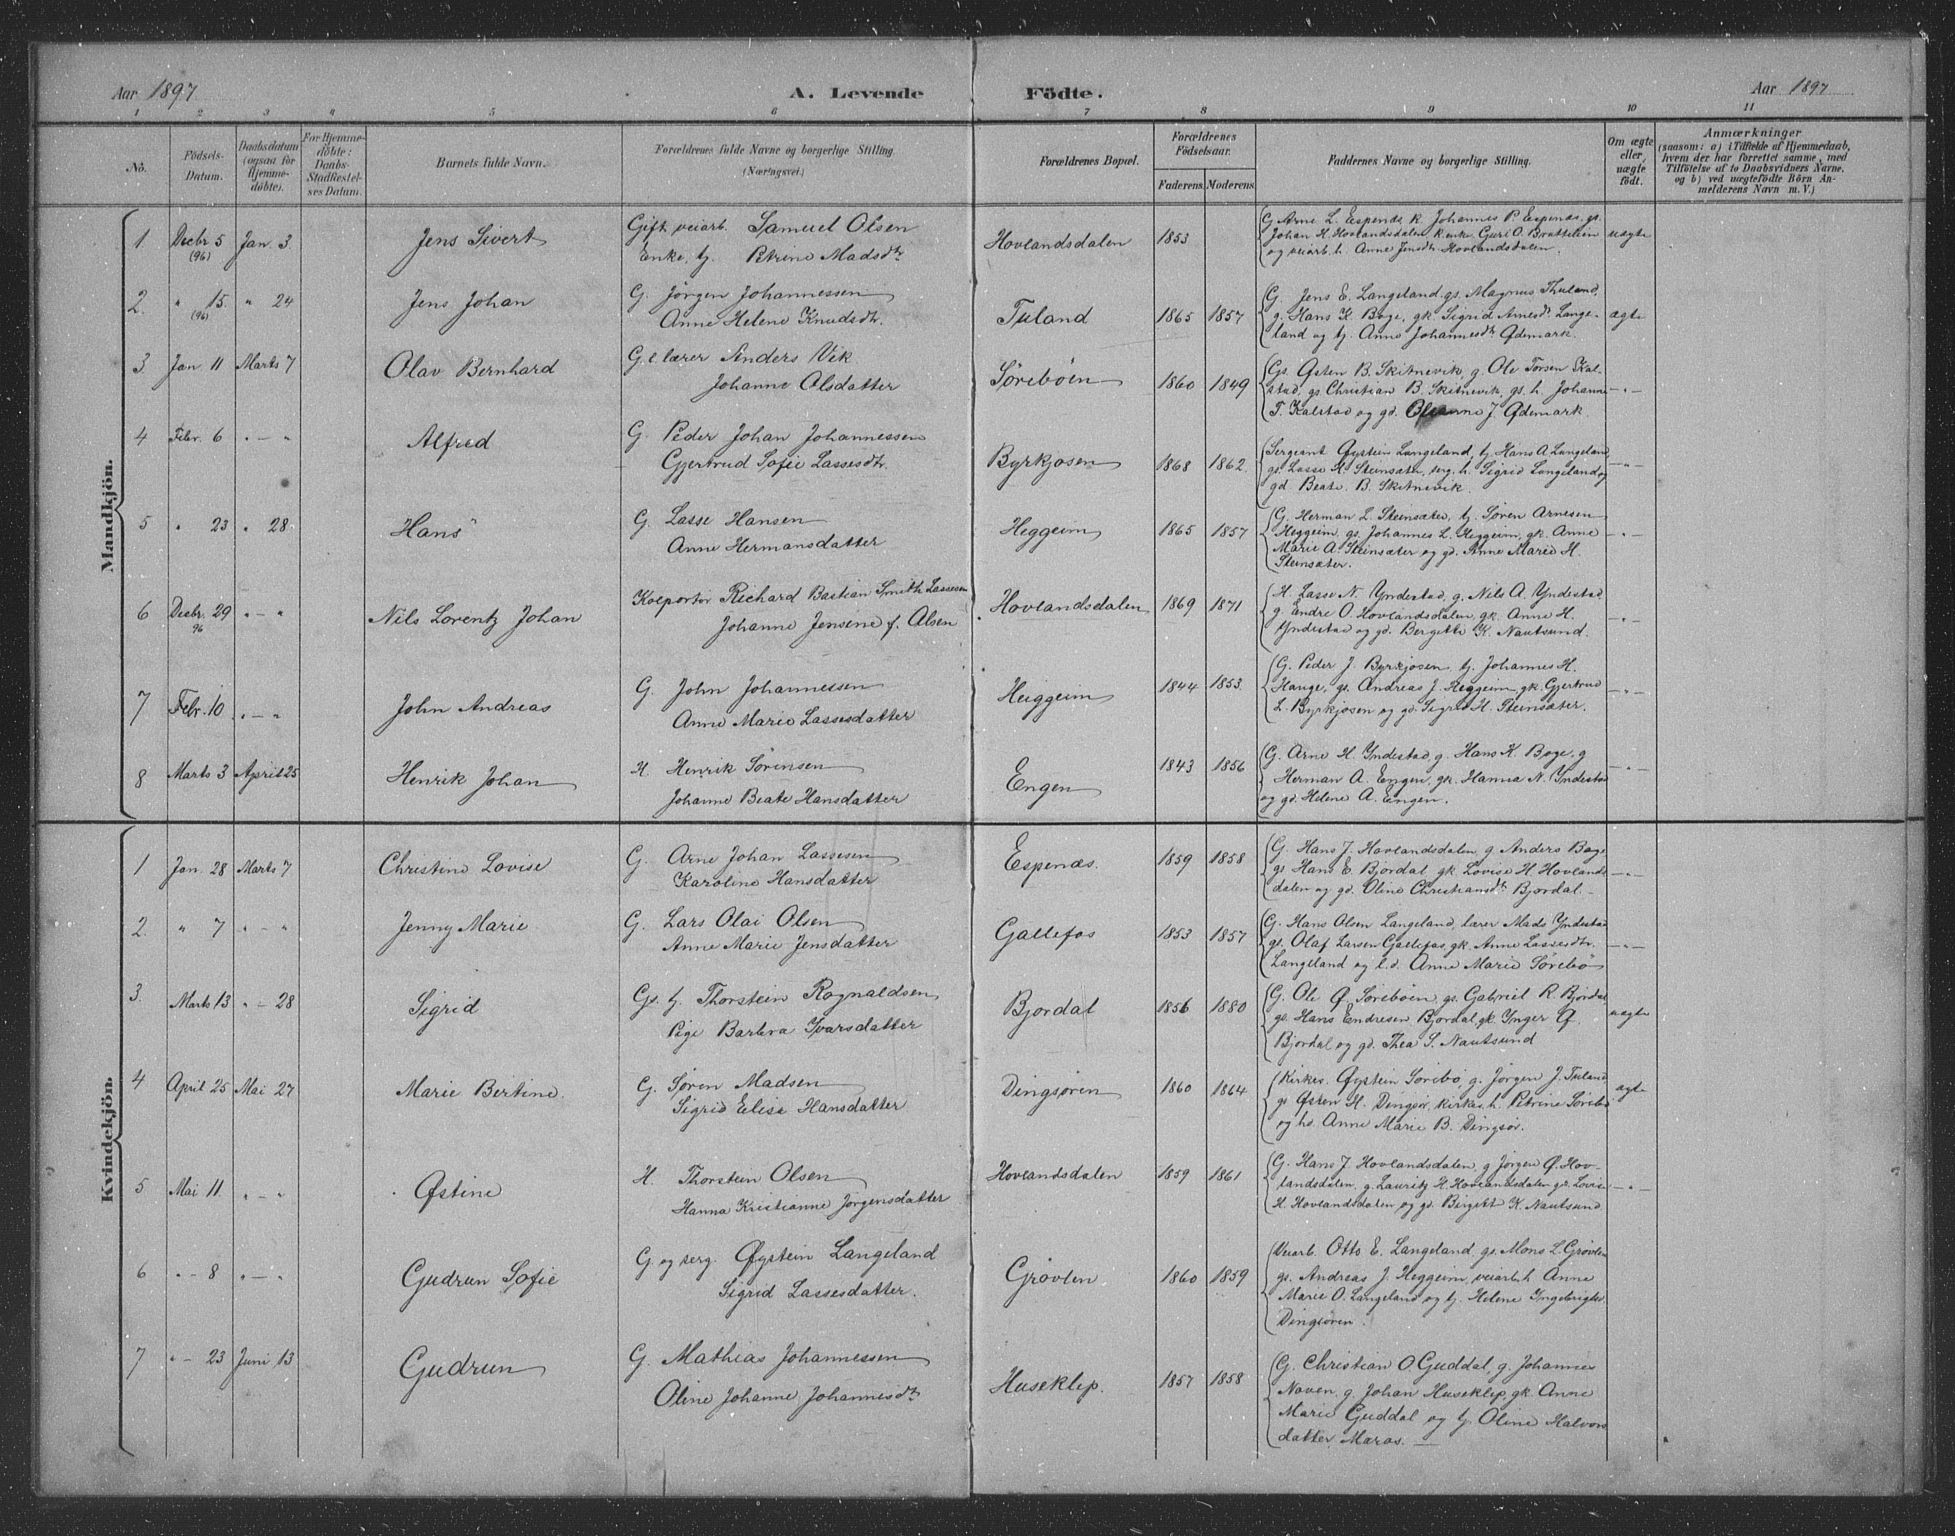 Aar 1897
A. Levende Födte.
Aar 1897
1 2 3 4 5 6 7 8 9 10 11
No.
Födsels-Datum.
Daabsdatum (ogsaa for Hjemmedöbte).
For Hjemmedöbte: Daabs-Stadfæstelses Datum.
Barnets fulde Navn.
Forældrenes fulde Navne og borgerlige Stilling. (Næringsvei.)
Forældrenes Bopæl.
Forældrenes Födselsaar.
Faderens. Moderens.
Faddernes Navne og borgerlige Stilling.
Om ægte eller, uægte födt.
Anmærkninger
(saasom: a) i Tilfælde af Hjemmedaab, hvem der har forrettet samme, med Tilföielse af to Daabsvidners Navne, og b) ved uægtefödte Börn Anmelderens Navn m. V.)
Mandkjön.
1 Decbr 5 (96) Jan. 3 Jens Sivert
Gift veiarb. Samuel Olsen
Enke, tj. Petrine Madsdtr
Hovlandsdalen 1853
G Arne L. Espenæs, k. Johannes P. Espenæs, gs.
Johan H. Hovlandsdalen, k enke Guri A. Brattelien
og veiarb. h. Anne Jensdtr Hovlandsdalen.
uægte
2. " 15. (96) " 24 Jens Johan
G. Jørgen Johannessen
Anne Helene Knudsdtr.
Tuland 1865 1857
G. Jens E. Langeland, gs. Magnus Thuland,
g. Hans K. Boge, gk. Sigrid Arnesdtr Lange-
land og tj. Anne Johannesdtr Ødemark.
ægte
3 Jan 11 Marts 7 Olav Bernhard
G. l. lærer Anders Vik
Johanne Olsdatter
Sørebøen 1860 1849
Gs. Østen B. Skitnevik, g. Ole Torsen Kal-
stad, gs Christian B. Skitnevik, gs. h. Johanne
T. Kalstad og gd. Oleanne J. Ødemark
- " -
4 Febr. 6 " - " Alfred
G. Peder Johan Johannessen
Gjertrud Sofie Lassesdtr.
Byrkjosen 1868 1862.
Sergeant Øystein Langeland, tj. Hans A Langeland
gs. Lasse H. Steinsæter, serg. h. Sigrid Langeland og
gd. Beate. B. Skitnevik.
- " -
5 " 23 " 28. Hans
G. Lasse Hansen
Anne Hermansdatter
Heggeim 1865 1857
G. Herman L. Steinsæter, tj. Søren Arnesen
Heggeim, gs. Johannes L Heggeim, gk. Anne
Marie A. Steinsæter og gd. Anne Marie H.
Steinsæter.
- " -
6 Decbr. 29 96 " - " Nils Lorentz Johan
Kolportør Richard Bastian Smith Lassesen
Johanne Jensene f. Olsen
Hovlandsdalen 1869 1871
H. Lasse N. Yndestad, g. Nils A. Yndestad,
g. Endre O. Hovlandsdalen, gk. Anne H.
Yndestad og gd. Bergitte K. Nautsund.
- " -
7 Febr. 10 " - " John Andreas
G. John Johannessen
Anne Marie Lassesdatter
Heiggeim 1844 1853.
G. Peder J. Byrkjosen, tj. Johannes H.
Hauge, gs. Andreas J. Heggeim, gk. Gjertrud
L. Byrkjosen og gd. Sigrid H. Steinsæter.
- " -
8 Marts 3 April 25 Henrik Johan
H. Henrik Sørensen
Johanne Beate Hansdatter
Engen 1843 1856
G. Arne H. Yndestad, g. Hans K. Boge, g
Herman A. Engen, gk. Hanna N. Yndestad
og gd. Helene A. Engen.
- " -
Kvindekjön.
1 Jan. 28 Marts 7 Christine Lovise
G. Arne Johan Lassesen
Karoline Hansdatter
Espenæs. 1859 1858
G. Hans J. Hovlandsdalen, g. Anders Boge
gs Hans E. Bjordal gk. Lovise H. Hovlands-
dalen og gd. Oline Christiansdtr Bjordal.
- " -
2. " 7 " - " Jenny Marie
G. Lars Olai Olsen
Anne Marie Jensdatter
Gallefos 1853 1857
G. Hans Olsen Langeland, lærer Mads Yndestad
gs. Olaf Larsen Gallefos, gk. Anne Lassesdtr.
Langeland og l.d. Anne Marie Sørebø
- " -
3. Marts 13 " - 28 Sigrid
Gs. tj. Thorstein Ragnaldsen
Pige Barbra Ivarsdatter
Bjordal 1856 1880
G. Ole Ø. Sørebøen, gs. Gabriel R. Bjordal
gs. Hans Endresen Bjordal, gk. Ynger Ø.
Bjordal og gd. Thea S. Nautsund
uægte
4 April 25 Mai 27 Marie Bertine.
G. Søren Madsen
Sigrid Elise Hansdatter
Dingsøren 1860 1864
Kirkes. Øystein Sørebø, g. Jørgen J. Tuland
gs Østen H. Dingsør, kirkes. h. Petrine Sørebø
og hs. Anne Marie B. Dingsør.
ægte
5 Mai 11. " - " Østine
H. Thorstein Olsen
Hanna Kristianne Jørgensdatter
Hovlandsdalen 1859 1861
G. Hans J. Hovlandsdalen, g Jørgen Ø. Hov-
landsdalen, g. Lauritz H. Hovlandsdalen gd. Lovise
H. Hovlandsdalen og gd. Birgitt K. Nautsund
- " -
6 " - 8 " - " Gudrun Sofie
G. og serg. Øystein Langeland
Sigrid Lassesdatter.
Grøvlen 1860 1859
Veiarb. Otto E. Langeland, gs. Mons L. Grøvlen
gs. Andreas J. Heggeim, veiarb. h. Anne
Marie O. Langeland og tj. Helene Ingebrigtsd.
Dingsøren.
7 " - 23 Juni 13 Gudrun
G. Mathias Johannessen
Oline Johanne Johannesdtr
Huseklep. 1857 1858
G. Christian O. Guddal, g. Johannes
Naven, g. Johan Huseklep, gk. Anne
Marie Guddal og tj. Oline Halvors
datter Maraas.